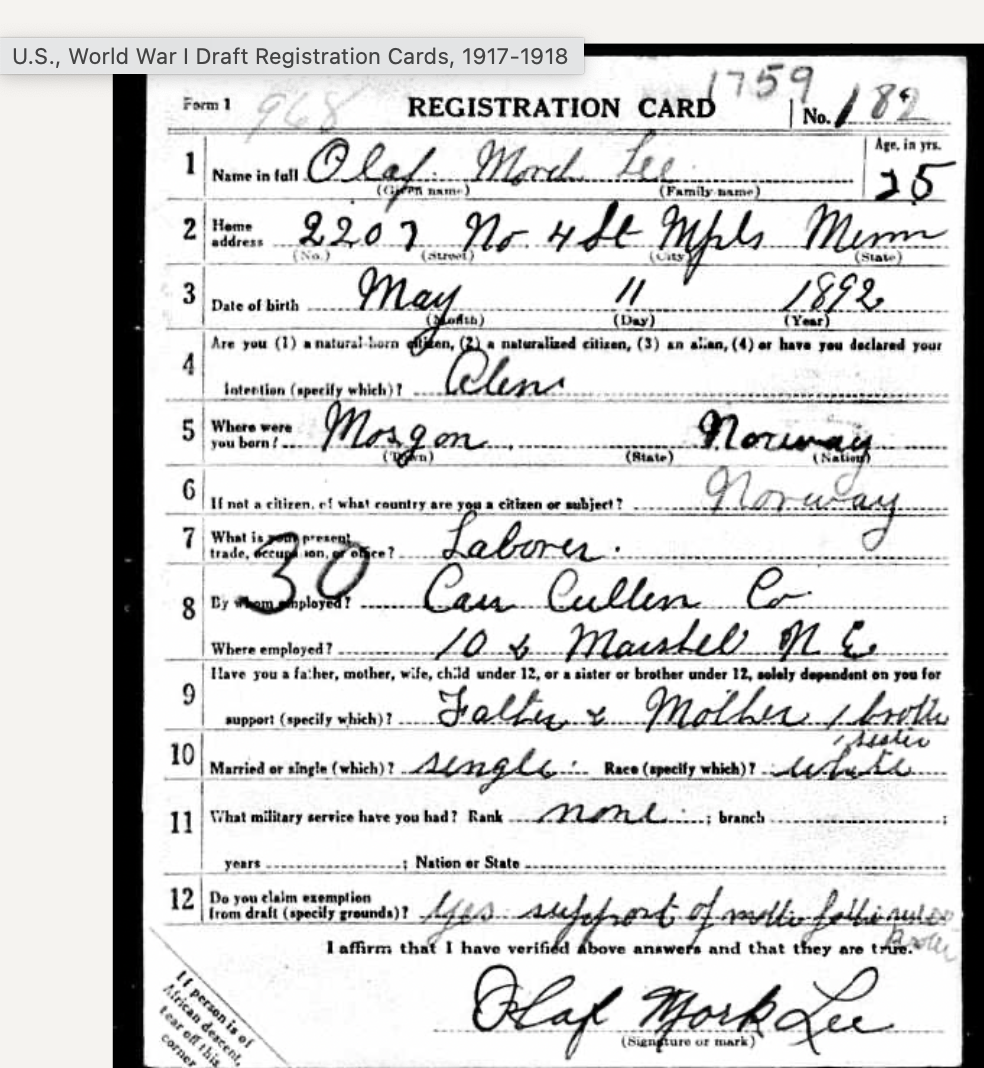 U.S., World War I Draft Registration Cards, 1917-1918
1759
Form 1 968 REGISTRATION CARD No. 182
1 Name in full Olaf Mord Lee Age, in yrs. 25
(Given name) (Family name)
2 Home address 2207 No 4 St Mpls Minn
(No.) (Street) (City) (State)
3 Date of birth May 11 1892
(Month) (Day) (Year)
Are you (1) a natural-born citizen, (2) a naturalized citizen, (3) an alien, (4) or have you declared your
4 intention (specify which)? Alen
5 Where were you born? Mosgon Norway
(Town) (State) (Nation)
6 If not a citizen, of what country are you a citizen or subject? Norway
7 What is your present trade, occupation, or office? Laborer.
30
8 By whom employed? Carr Cullen Co
Where employed? 10 & Marshel N E.
9 Have you a father, mother, wife, child under 12, or a sister or brother under 12, solely dependent on you for
support (specify which)? Father & Mother 1 brother
1 sister
10 Married or single (which)? single Race (specify which)? white
11 What military service have you had? Rank none ; branch ;
years ; Nation or State
12 Do you claim exemption from draft (specify grounds)? Yes support of mother father
Brother
I affirm that I have verified above answers and that they are true.
Olaf Mork Lee
(Signature or mark)
If person is of
African descent,
tear off this
corner